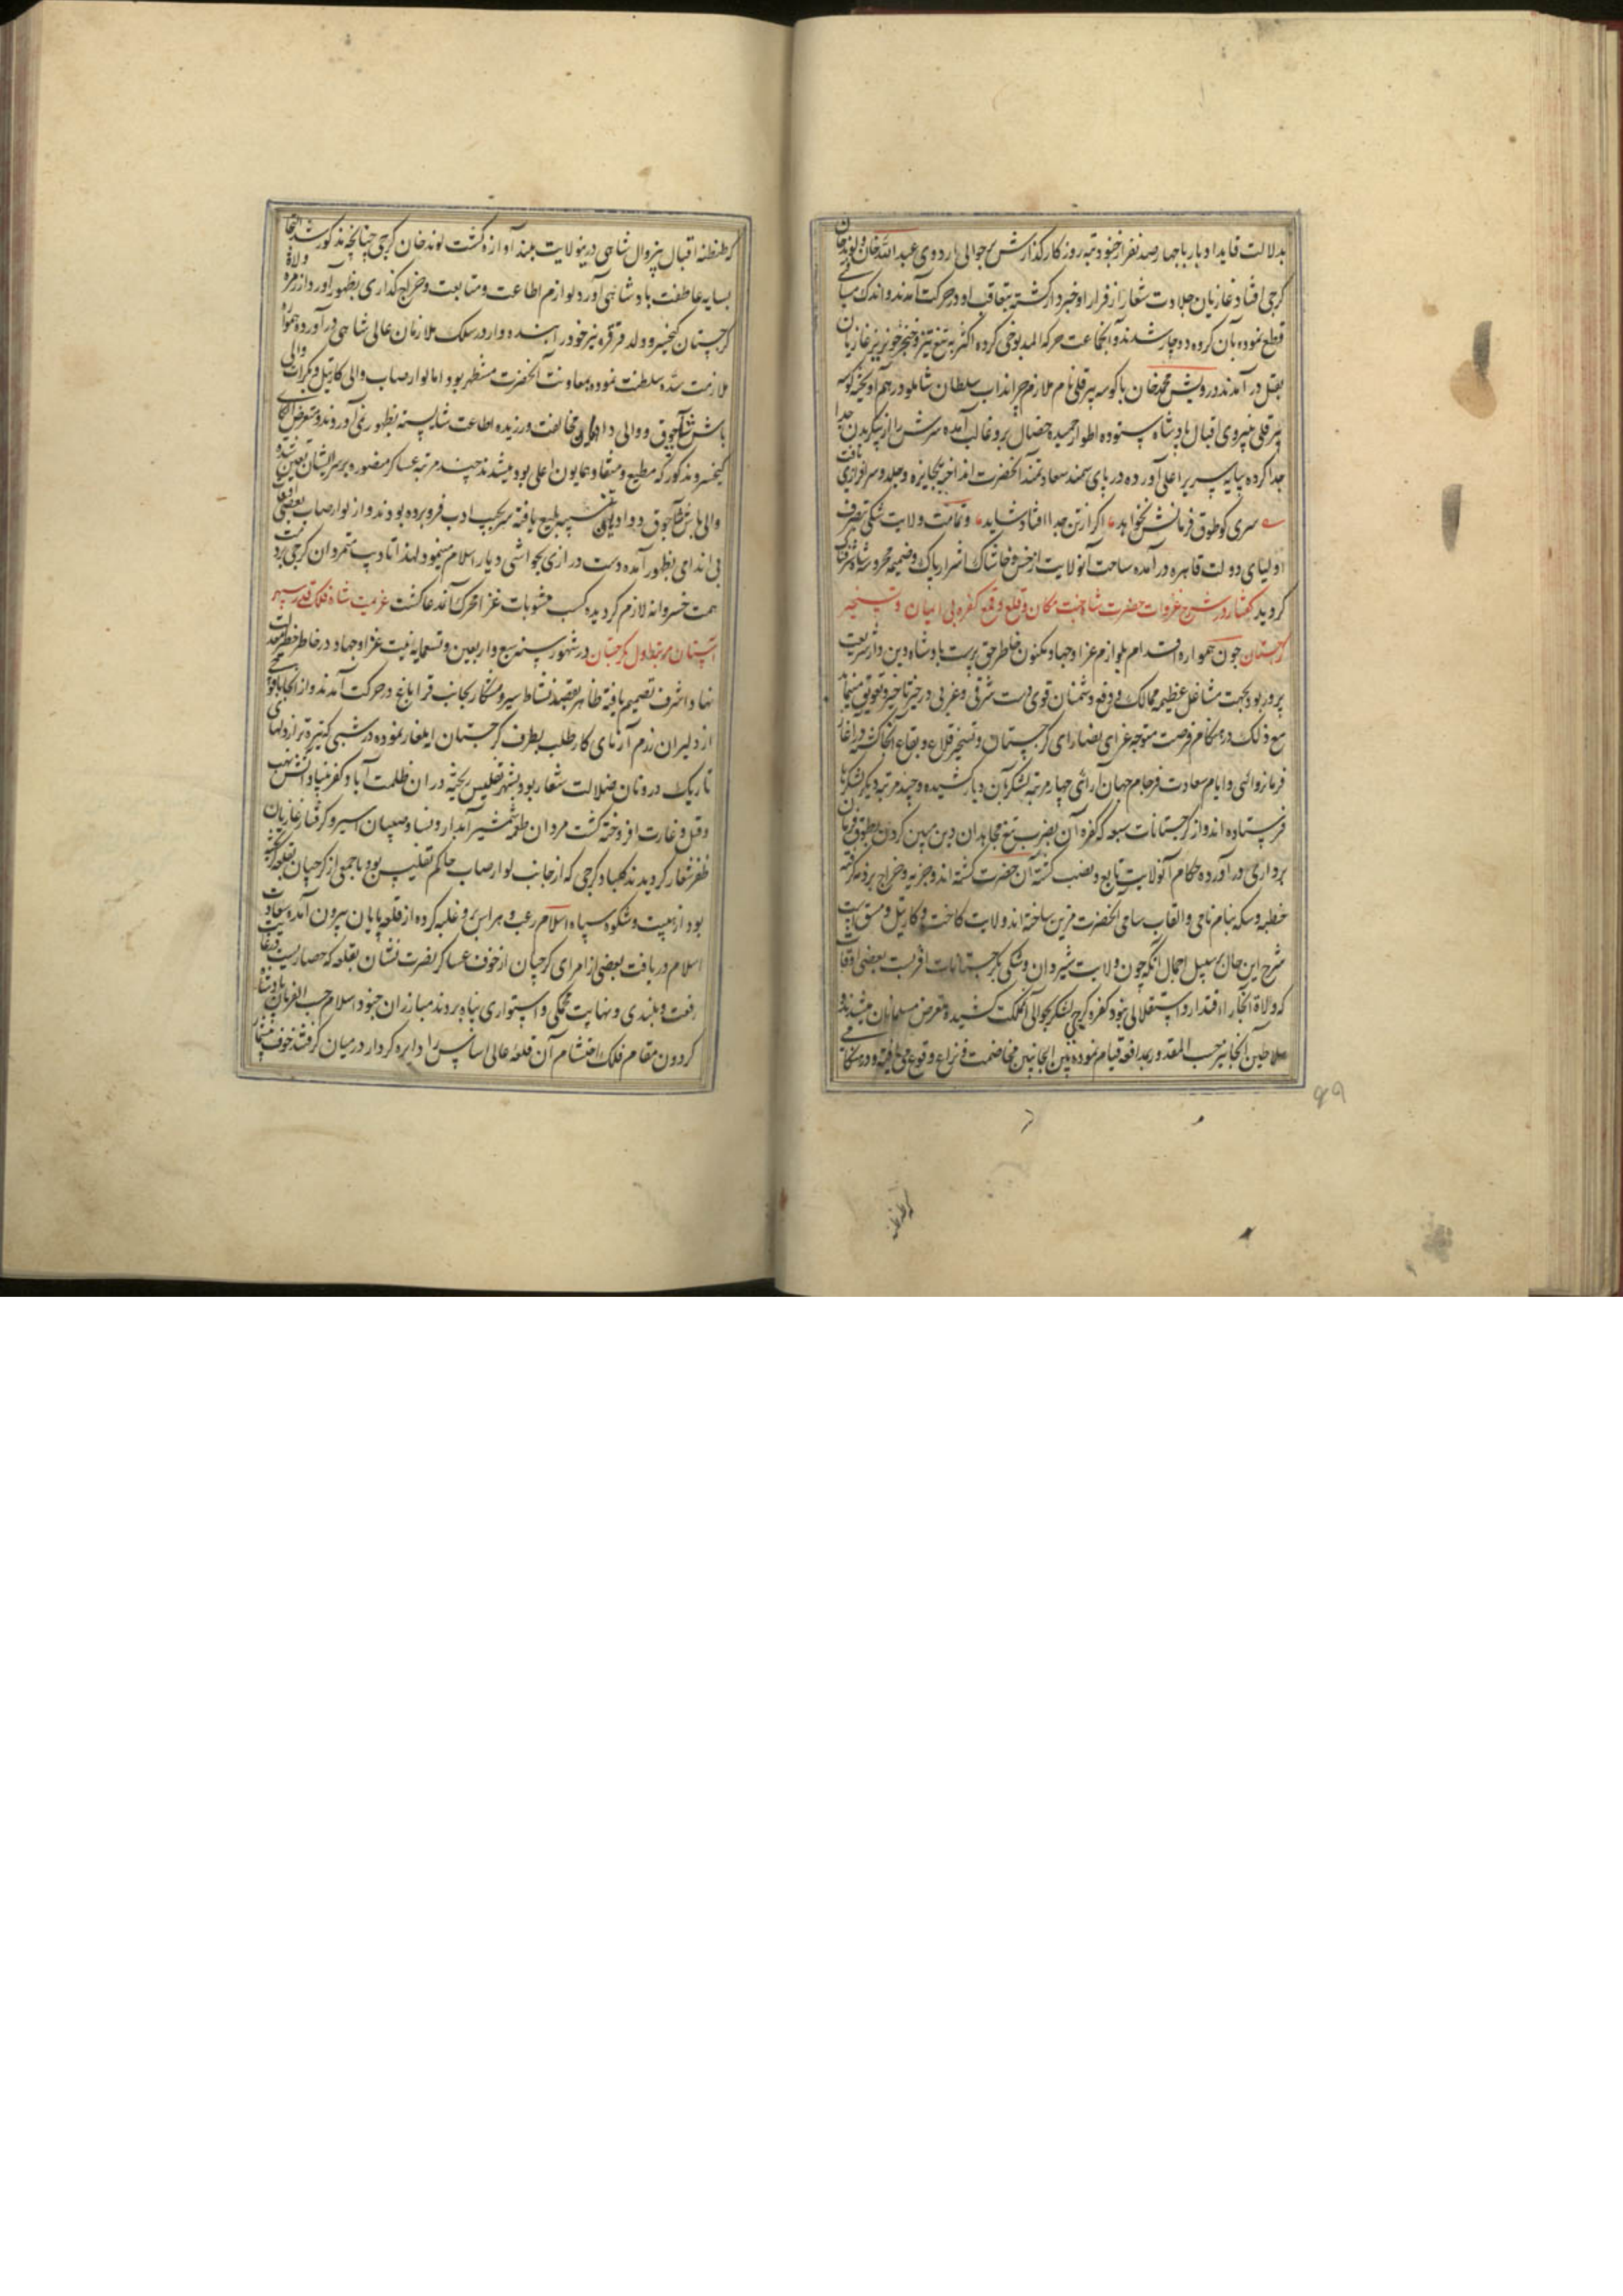 بدلالت قاید ادبار با چهار صد نفر از جنود تبه روزکار کذارش بحوالی اردوی عبد الله خان و لوند خان
کرجی افتاد غازیان جلادت شعار از فرار او خبردار کشته بتعاقب او در حرکت آمدند و اندک مسافتی
قطع نموده بآن کروه دوچار شدند و آنجماعت حرکه المذبوحی کرده اکثر به تیغ تیز و خنجر خونریز غازیان
بقتل در آمدند درویش محمد خان با کوسه پیر قلی نام ملازم چرانداب سلطان شاملو در هم آویخته کوسه
پیر قلی بنیروی اقبال پادشاه ستوده اطوار حمیده خصال برو غالب آمده سرش را از پیکر بدن جدا
جدا کرده بپایه سریر اعلی آورده در پای سمند سعادتمند آنحضرت انداخته بجایزه و جلدو سرافرازی یافت
سری کو طوق فرمانش نخواهد اکر از تن جدا افتاد شاید و تمامت ولایت شکی بتصرف
اولیای دولت قاهره در آمده ساحت آنولایت از خس و خاشاک اشرار پاک و ضمیمه محروسه شد
کردید کفتار در شرح غزوات حضرت شاه جنت مکان و قلع و قمع کفره بی ایمان و تسخیر
کرجستان چون همواره اقدام بلوازم غزا و جهاد مکنون خاطر حق پرست پادشاه دین دار شریعت
پرور بود بجهت مشاغل عظیمه ممالک و دفع دشمنان قوی دست شرقی و غربی در حیز تاخیر و تعویق میماند
مع ذلک در هنکام فرصت متوجه غزای نصارای کرجستان و تسخیر قلاع و بقاع آنجا کشته در آغاز
فرمانروائی و ایام سعادت فرجام جهان آرائی چهار مرتبه لشکر بآن دیار کشیده و چند مرتبه دیکر لشکرها
فرستاده اند و از کرجستانات سبعه که کفره آن بضرب تیغ مجاهدان دین مبین کردن بطوق فرمان
برداری در آورده حکام آنولایت تابع و نصب کشته آن حضرت کشته اند و جزیه و خراج بر ذمه کرفته
خطبه و سکه بنام نامی و القاب سامی آنحضرت مزین ساخته اند ولایت کاخت و کارتیل و مسق است
شرح این حال بر سبیل اجمال آنکه چون ولایت شیروان و شکی بکرجستانات اقربست بعضی اوقات
که ولاة آنجا را اقتدار و استقلالی نبود کفره کرجی لشکر بحوالی آنملک کشیده متعرض مسلمانان میشدند و
سلاطین آنجا نیز حسب المقدور بمدافعه قیام نموده بین الجانبین مخاصمت و نزاع وقوع می یافته و در هنکامی
که طنطنه
که طنطنه اقبال بیزوال شاهی درینولایت بلند آوازه کشت لوند خان کرجی چنانچه مذکور شد التجا
بسایه عاطفت پادشاهی آورد و لوازم اطاعت و متابعت و خراج کذاری بظهور آورد و از زمره ولاة
کرجستان کیخسرو ولد قرقره نیز خود را بنده وار در سلک ملازمان عالی شاهی در آورده همواره
ملازمت سده سلطنت نموده بمعاونت آنحضرت مستظهر بود اما لوارصاب والی کارتیل و بکرات والی
باش آجوق و والی دادیان مخالفت ورزیده اطاعت شایسته بظهور نمی آوردند و متعرض الکای
کیخسرو مذکور که مطیع و منقاد همایون اعلی بود میشدند چند مرتبه عساکر منصوره بر سر ایشان تعین شده
والی باش آجوق و دادیان تنبیه بلیغ یافته سر بجیب ادب فرو برده بودند و از لوارصاب بعضی اوقات
بی اندامی بظهور آمده دست درازی بحواشی دیار اسلام مینمود لهذا تادیب متمردان کرجی بر ذمت
همت خسروانه لازم کردیده کسب مثوبات غزا محرک آن مدعا کشت عزیمت شاه فلک قدر سپهر
آستان مرتبه اول بکرجستان در شهور سنه سبع و اربعین و تسعمایه نیت غزا و جهاد در خاطر خطیر معدلت
نهاد اشرف تصمیم یافته ظاهر بقصد نشاط سیر و شکار بجانب قراباغ در حرکت آمدند و از آنجا با فوجی
از دلیران رزم آزمای کار طلب بطرف کرجستان ایلغار نموده در شبی که تیره تر از دلهای
تاریک درونان ضلالت شعار بود بشهر تفلیس ریخته در ان ظلمت آباد کفر بنیاد آتش نهب
و قتل و غارت افروخته کشت مردان طعمه شمشیر آبدار و نسا و صبیان اسیر و کرفتار غازیان
ظفر شعار کردیدند کلباد کرجی که از جانب لوارصاب حاکم تفلیس بود با جمعی از کرجیان بقلعه کریخته
بود از هیبت و شکوه سپاه اسلام رعب و هراس برو غلبه کرده از قلعه پایان بیرون آمده سعادت
اسلام دریافت بعضی از امرای کرجیان از خوف عساکر نصرت نشان بقلعه که حصاریست در غایت
رفعت و بلندی و نهایت محکمی و استواری پناه بردند مبارزان جنود اسلام حسب الفرمان پادشاه
کردون مقام فلک احتشام آن قلعه عالی اساس را دایره کردار در میان کرفتند خوف بیشمار